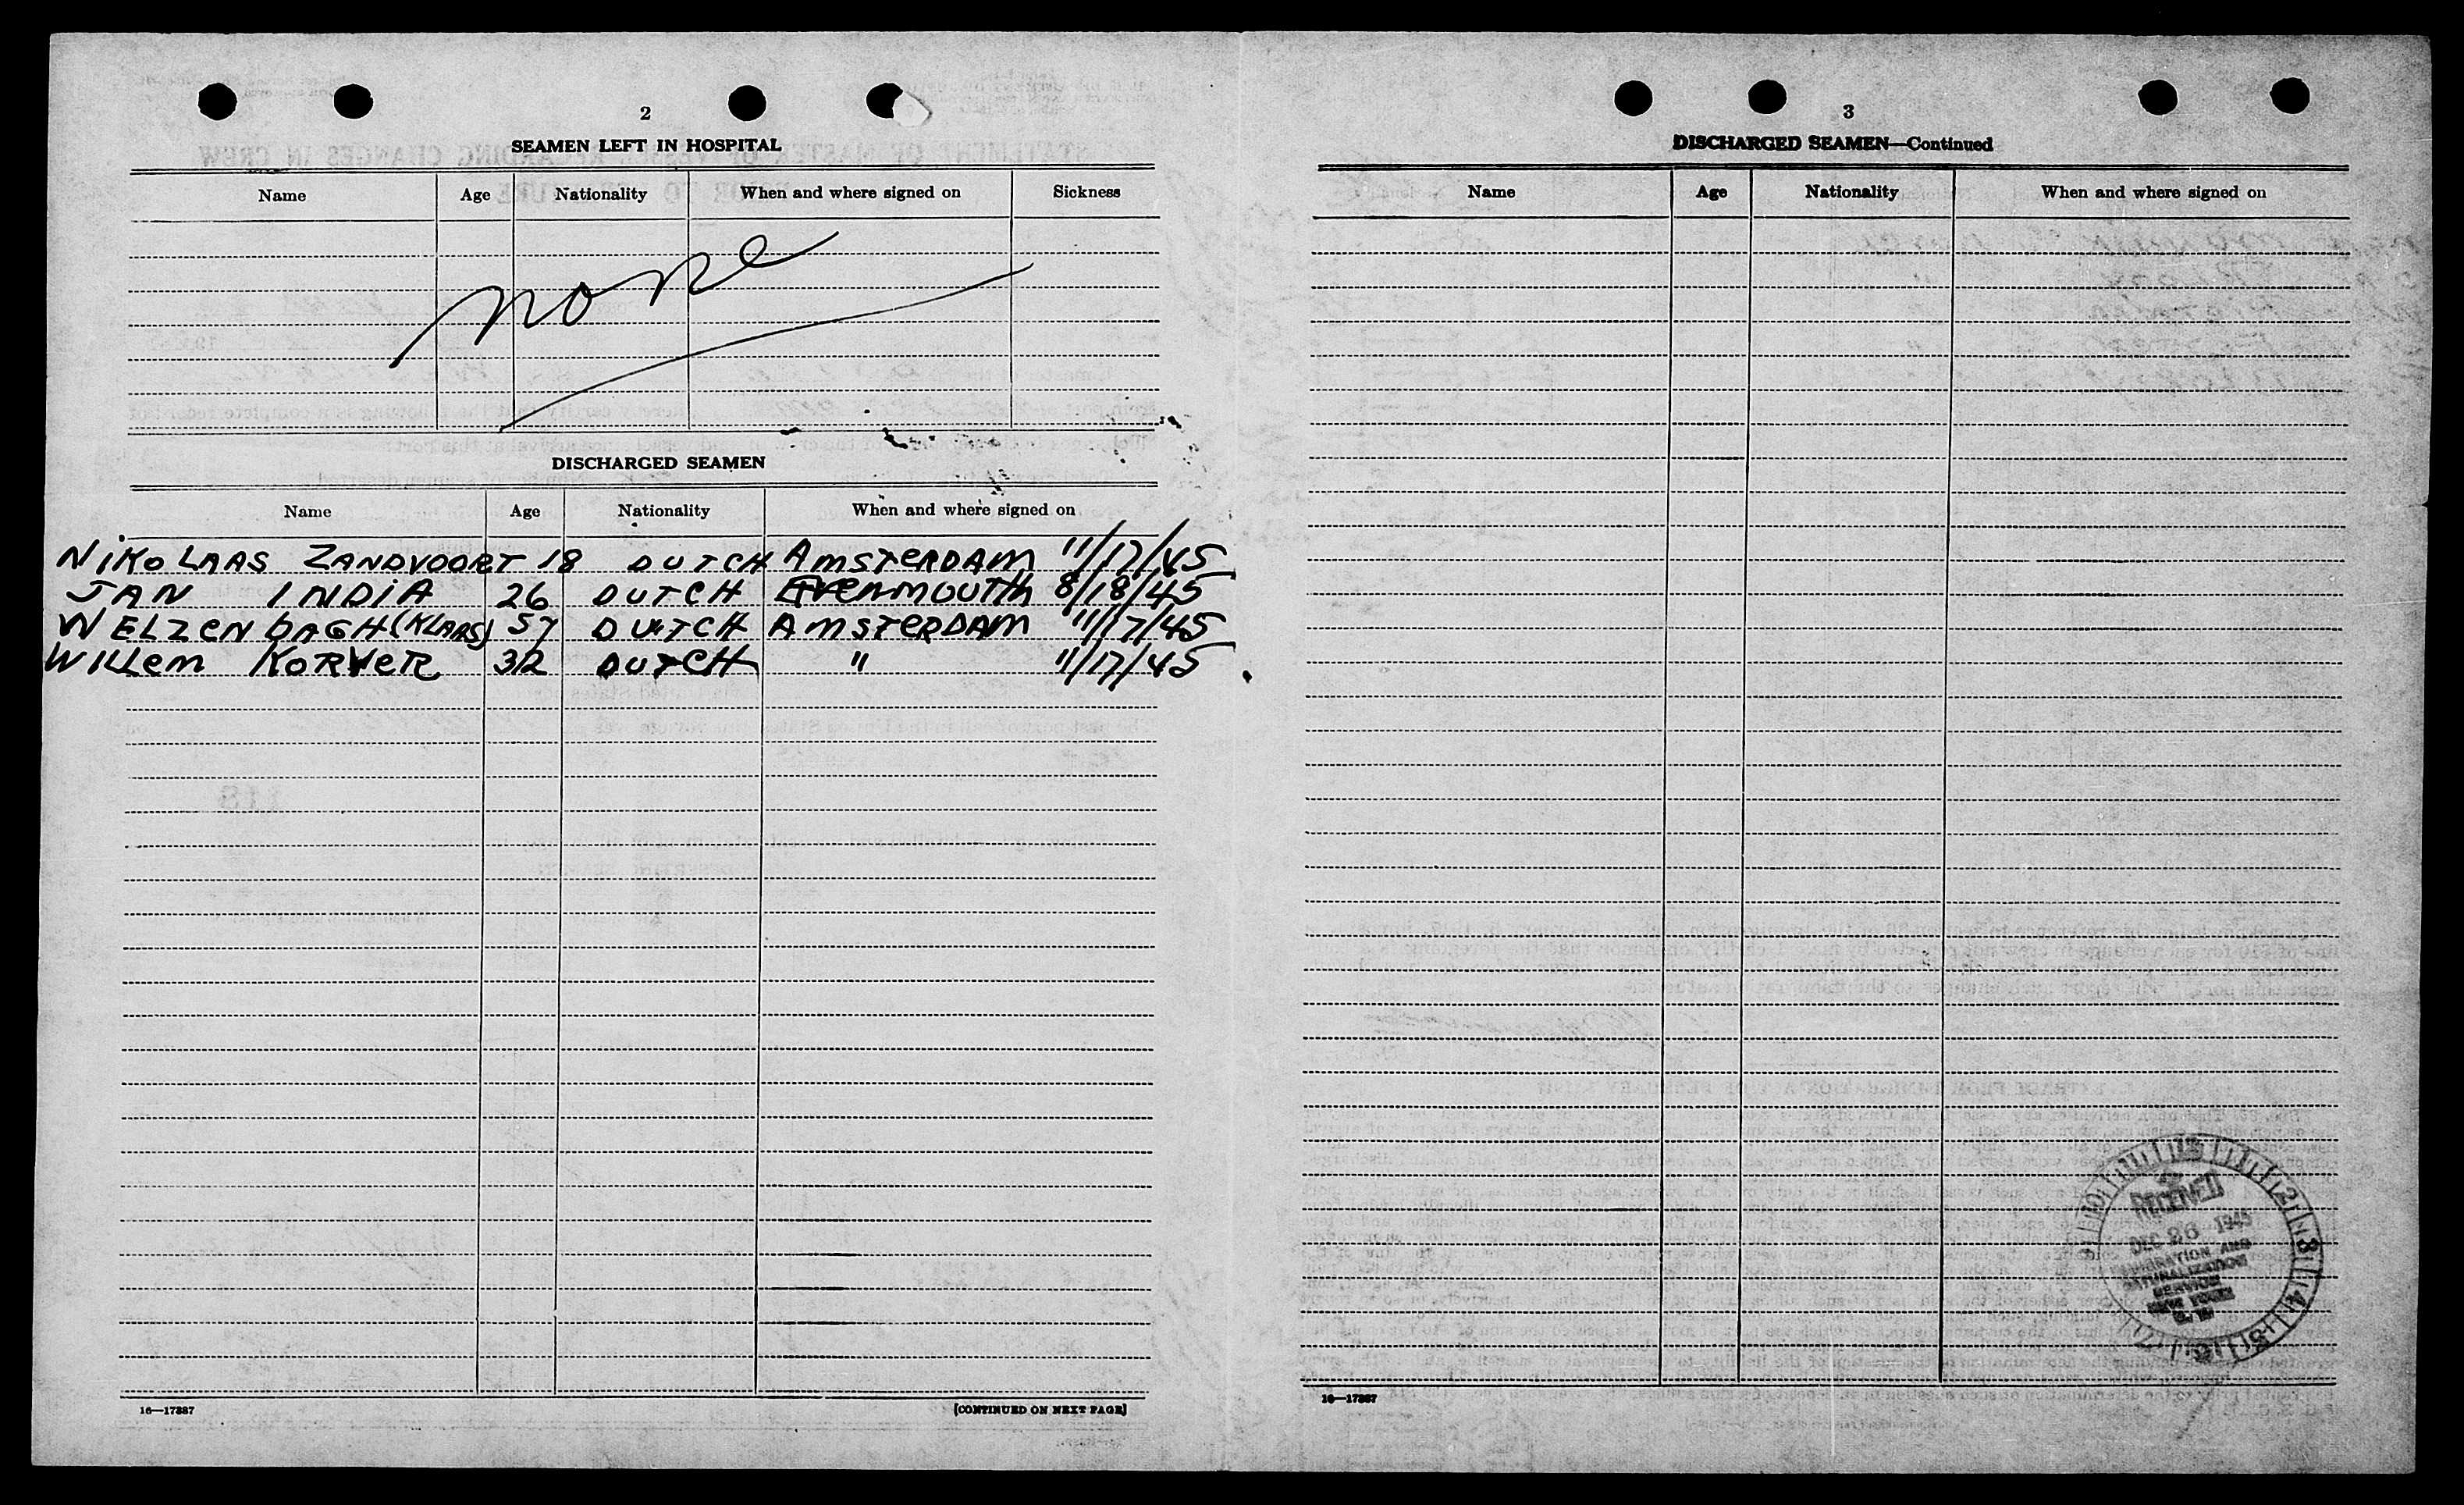 2
SEAMEN LEFT IN HOSPITAL
Name Age Nationality When and where signed on Sickness
none
DISCHARGED SEAMEN
Name Age Nationality When and where signed on
NIKOLAAS ZANDVOORT 18 DUTCH AMSTERDAM 11/17/45
JAN INDIA 26 DUTCH 8/18/45
WELZENBAGH (KLAAS) 57 DUTCH AMSTERDAM 11/17/45
WILLEM KORVER 32 DUTCH " 11/17/45
16—17887
[CONTINUED ON NEXT PAGE]
3
DISCHARGED SEAMEN—Continued
Name Age Nationality When and where signed on
RECEIVED
DEC 26 1945
IMMIGRATION AND
NATURALIZATION
SERVICE
NEW YORK
16—17887